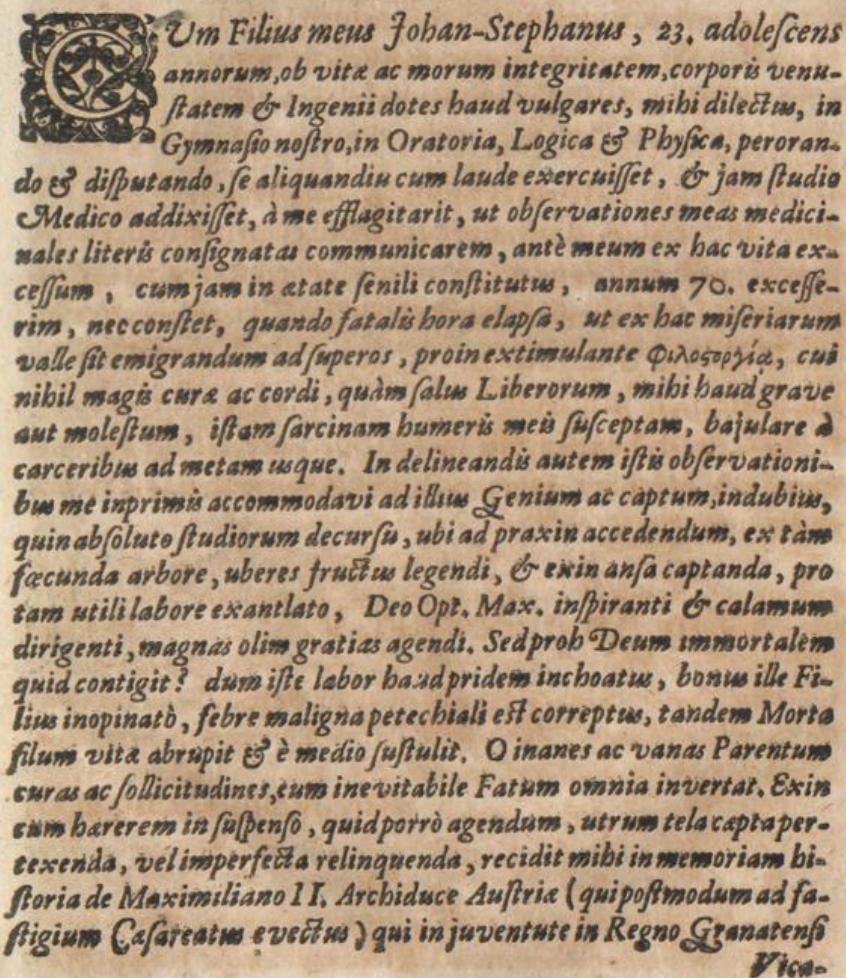 CUm Filius meus Johan-Stephanus, 23. adoleſcens
annorum, ob vitæ ac morum integritatem, corporis venu-
ſtatem & Ingenii dotes haud vulgares, mihi dilectus, in
Gymnaſio noſtro, in Oratoria, Logica & Phyſica, peroran-
do & diſputando, ſe aliquandiu cum laude exercuiſſet, & jam ſtudio
Medico addixiſſet, à me efflagitarit, ut obſervationes meas medici-
nales literis conſignatas communicarem, antè meum ex hac vita ex-
ceſſum, cum jam in ætate ſenili conſtitutus, annum 70. exceſſe-
rim, nec conſtet, quando fatalis hora elapſa, ut ex hac miſeriarum
valle ſit emigrandum ad ſuperos, proin extimulante φιλοϛοργίᾳ, cui
nihil magis curæ ac cordi, quàm ſalus Liberorum, mihi haud grave
aut moleſtum, iſtam ſarcinam humeris meis ſuſceptam, bajulare à
carceribus ad metam usque. In delineandis autem iſtis obſervationi-
bus me inprimis accommodavi ad illius Genium ac captum, indubius,
quin abſoluto ſtudiorum decurſu, ubi ad praxin accedendum, ex tàm
fœcunda arbore, uberes fructus legendi, & exin anſa captanda, pro
tam utili labore exantlato, Deo Opt. Max. inſpiranti & calamum
dirigenti, magnas olim gratias agendi. Sed proh Deum immortalem
quid contigit? dum iſte labor haud pridem inchoatus, bonus ille Fi-
lius inopinatò, febre maligna petechiali eſt correptus, tandem Morta
filum vitæ abrupit & è medio ſuſtulit. O inanes ac vanas Parentum
curas ac ſollicitudines, cum inevitabile Fatum omnia invertat. Exin
cum hærerem in ſuſpenſo, quid porrò agendum, utrum tela capta per-
texenda, vel imperfecta relinquenda, recidit mihi in memoriam hi-
ſtoria de Maximiliano II. Archiduce Auſtriæ (qui poſtmodum ad fa-
ſtigium Cæſareatus evectus) qui in juventute in Regno Granatenſi
Vica-